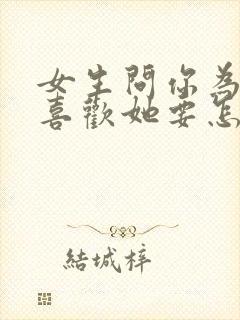 女生問你為
喜歡她要怎
結城梓